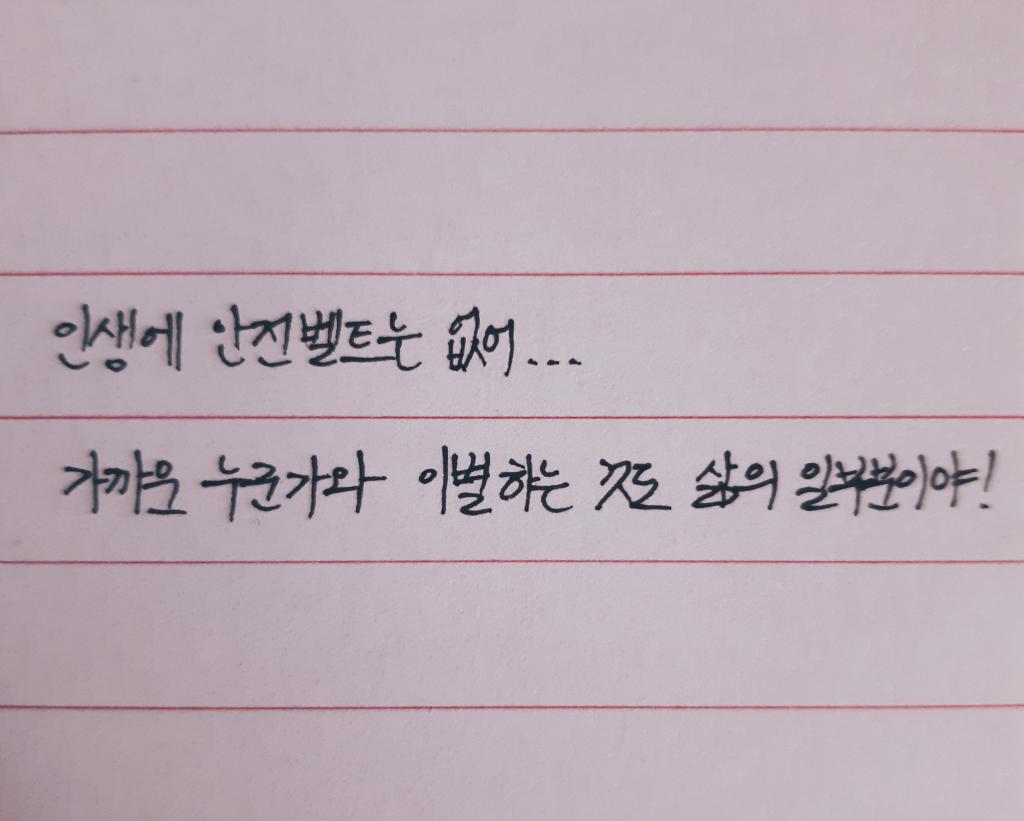 인생에 안전벨트는 없어...
가까운 누군가와 이별하는 것도 삶의 일부분이야!